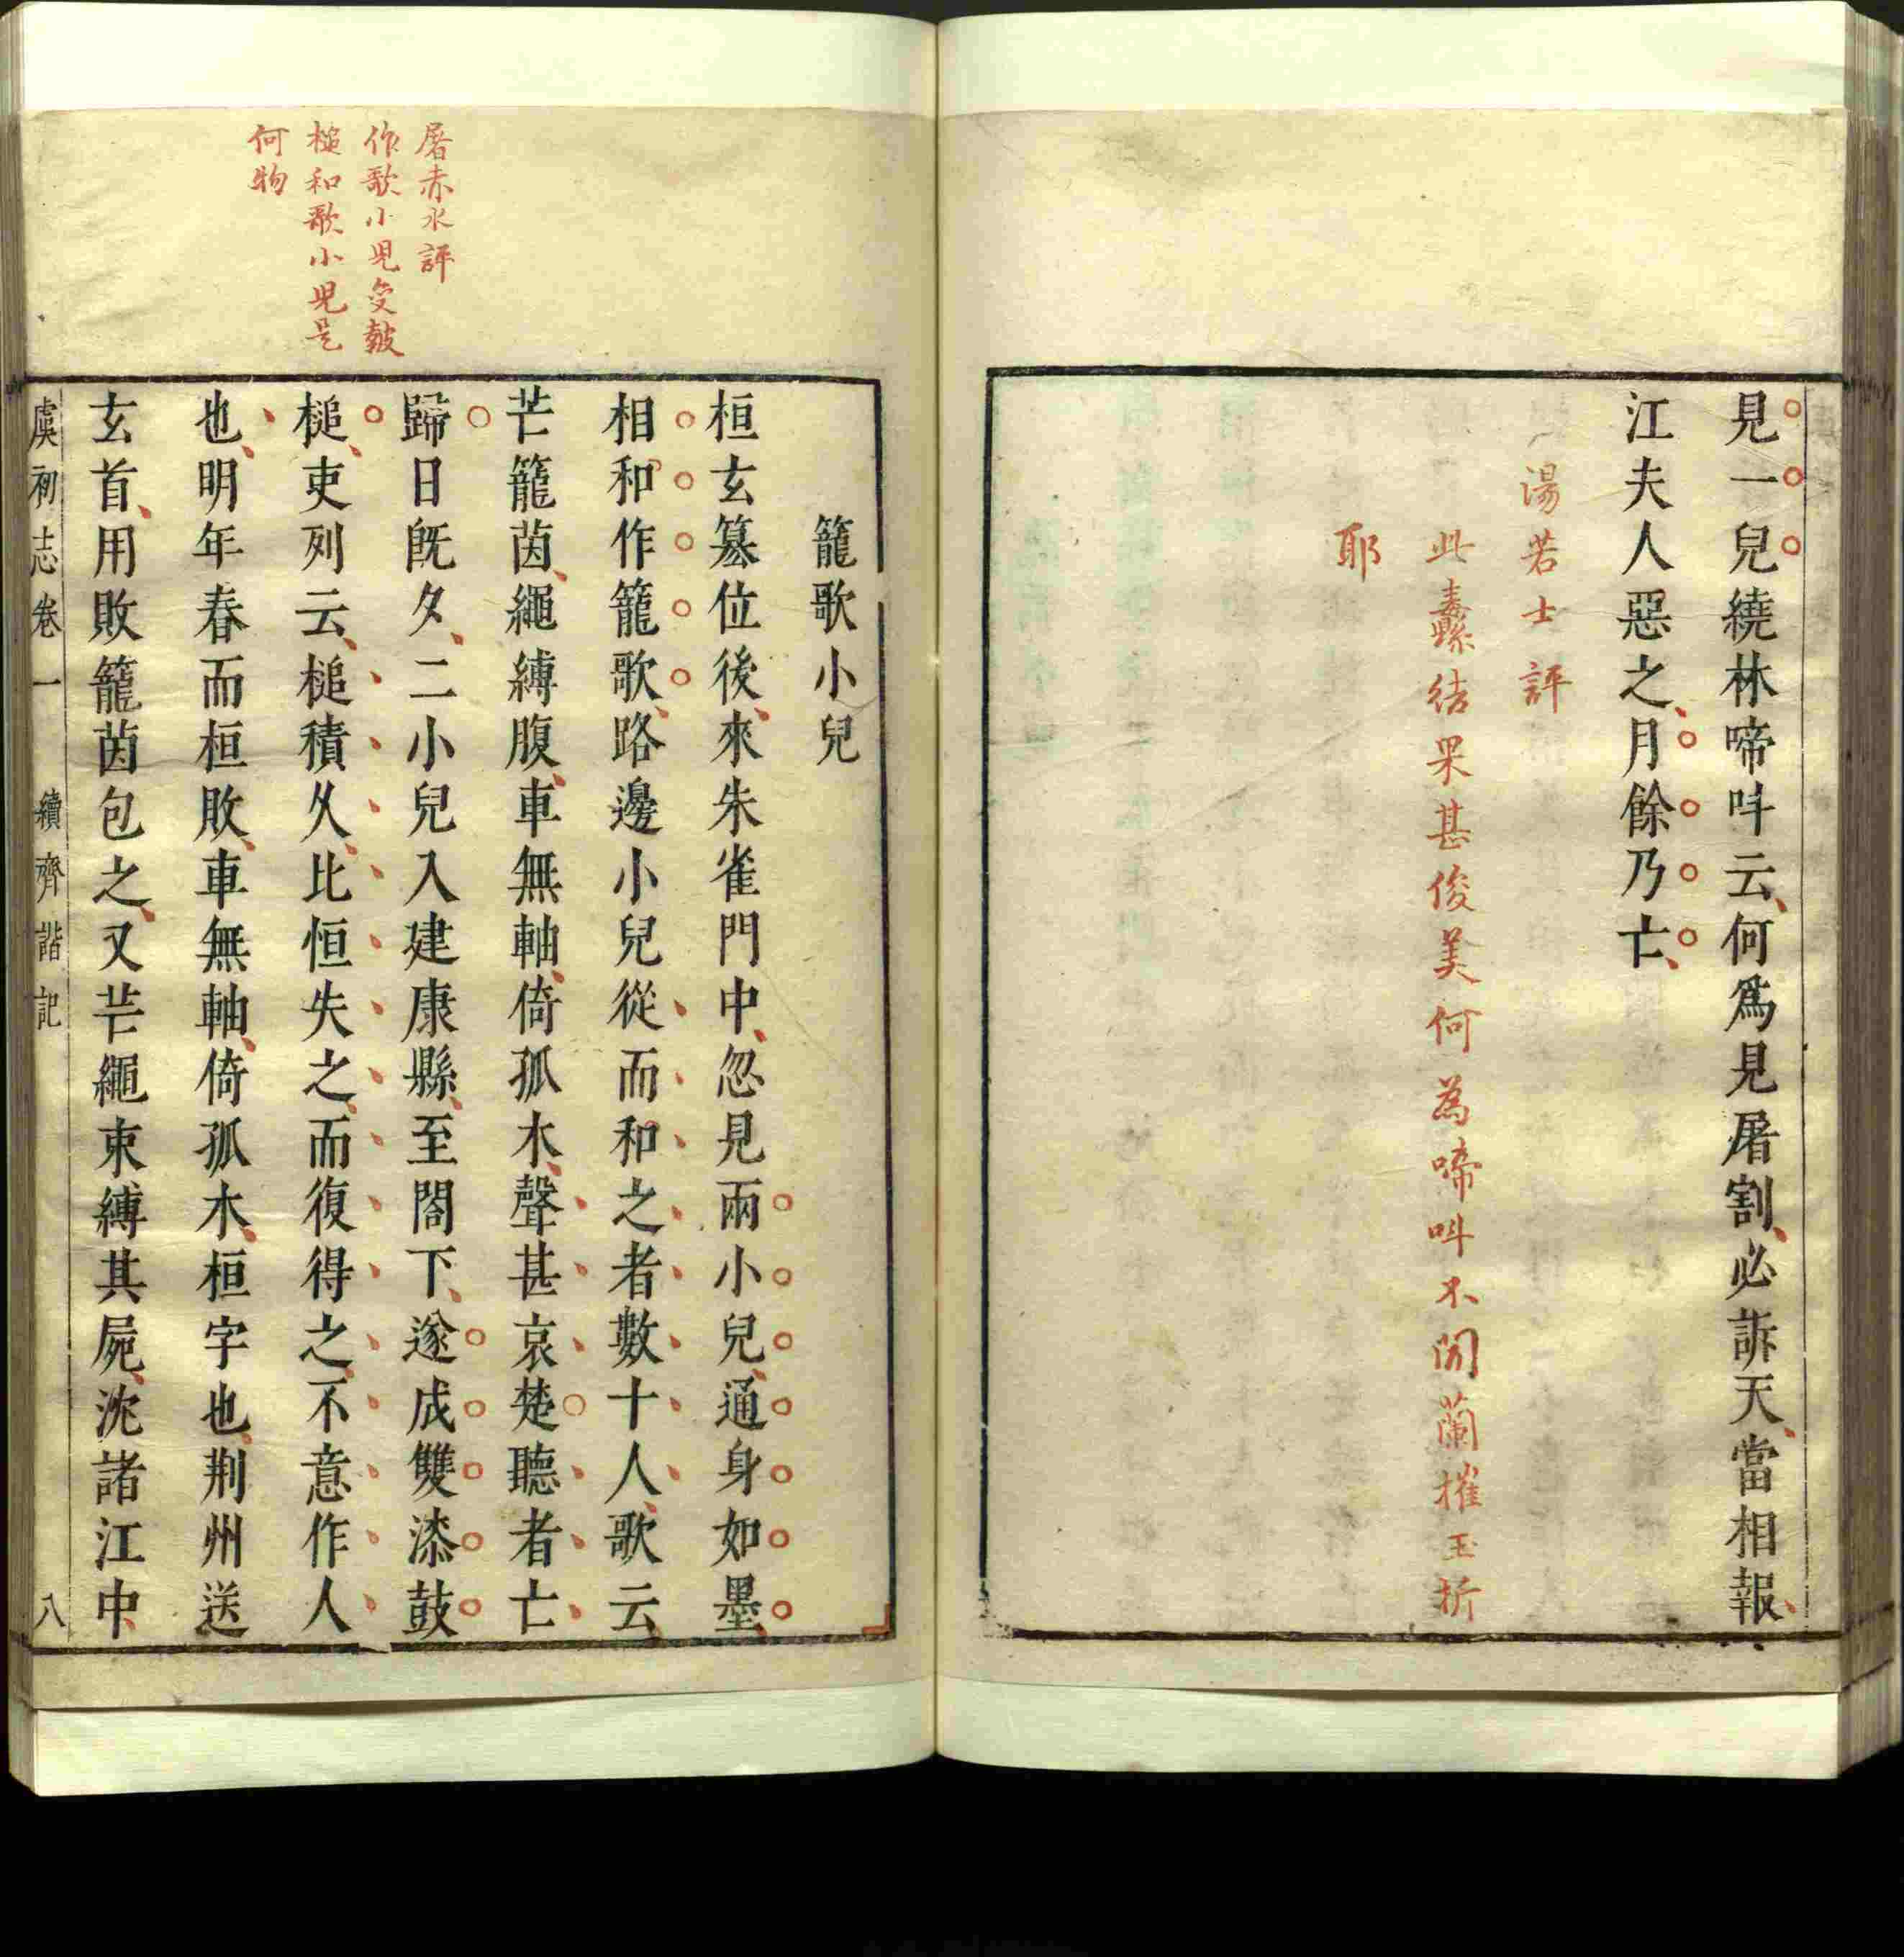 見一兒繞林啼呌云何爲見屠割必訴天當相報
江夫人惡之月餘乃亡
湯若士評
此纛結果甚俊美何為啼呌不閒蘭摧玉折
耶
籠歌小兒
桓玄篡位後來朱雀門中忽見兩小兒通身如墨
相和作籠歌路邊小兒從而和之者數十人歌云
芒籠茵繩縛腹車無軸倚孤木聲甚哀楚聽者亡
歸日旣夕二小兒入建康縣至閤下遂成雙漆鼓
槌吏列云槌積久比恒失之而復得之不意作人
也明年春而桓敗車無軸倚孤木桓字也荆州送
玄首用敗籠茵包之又芒繩束縛其屍沈諸江中
屠赤水評
作歌小兒变皷
槌和歌小兒是
何物
虞初志卷一 續齊諧記 八